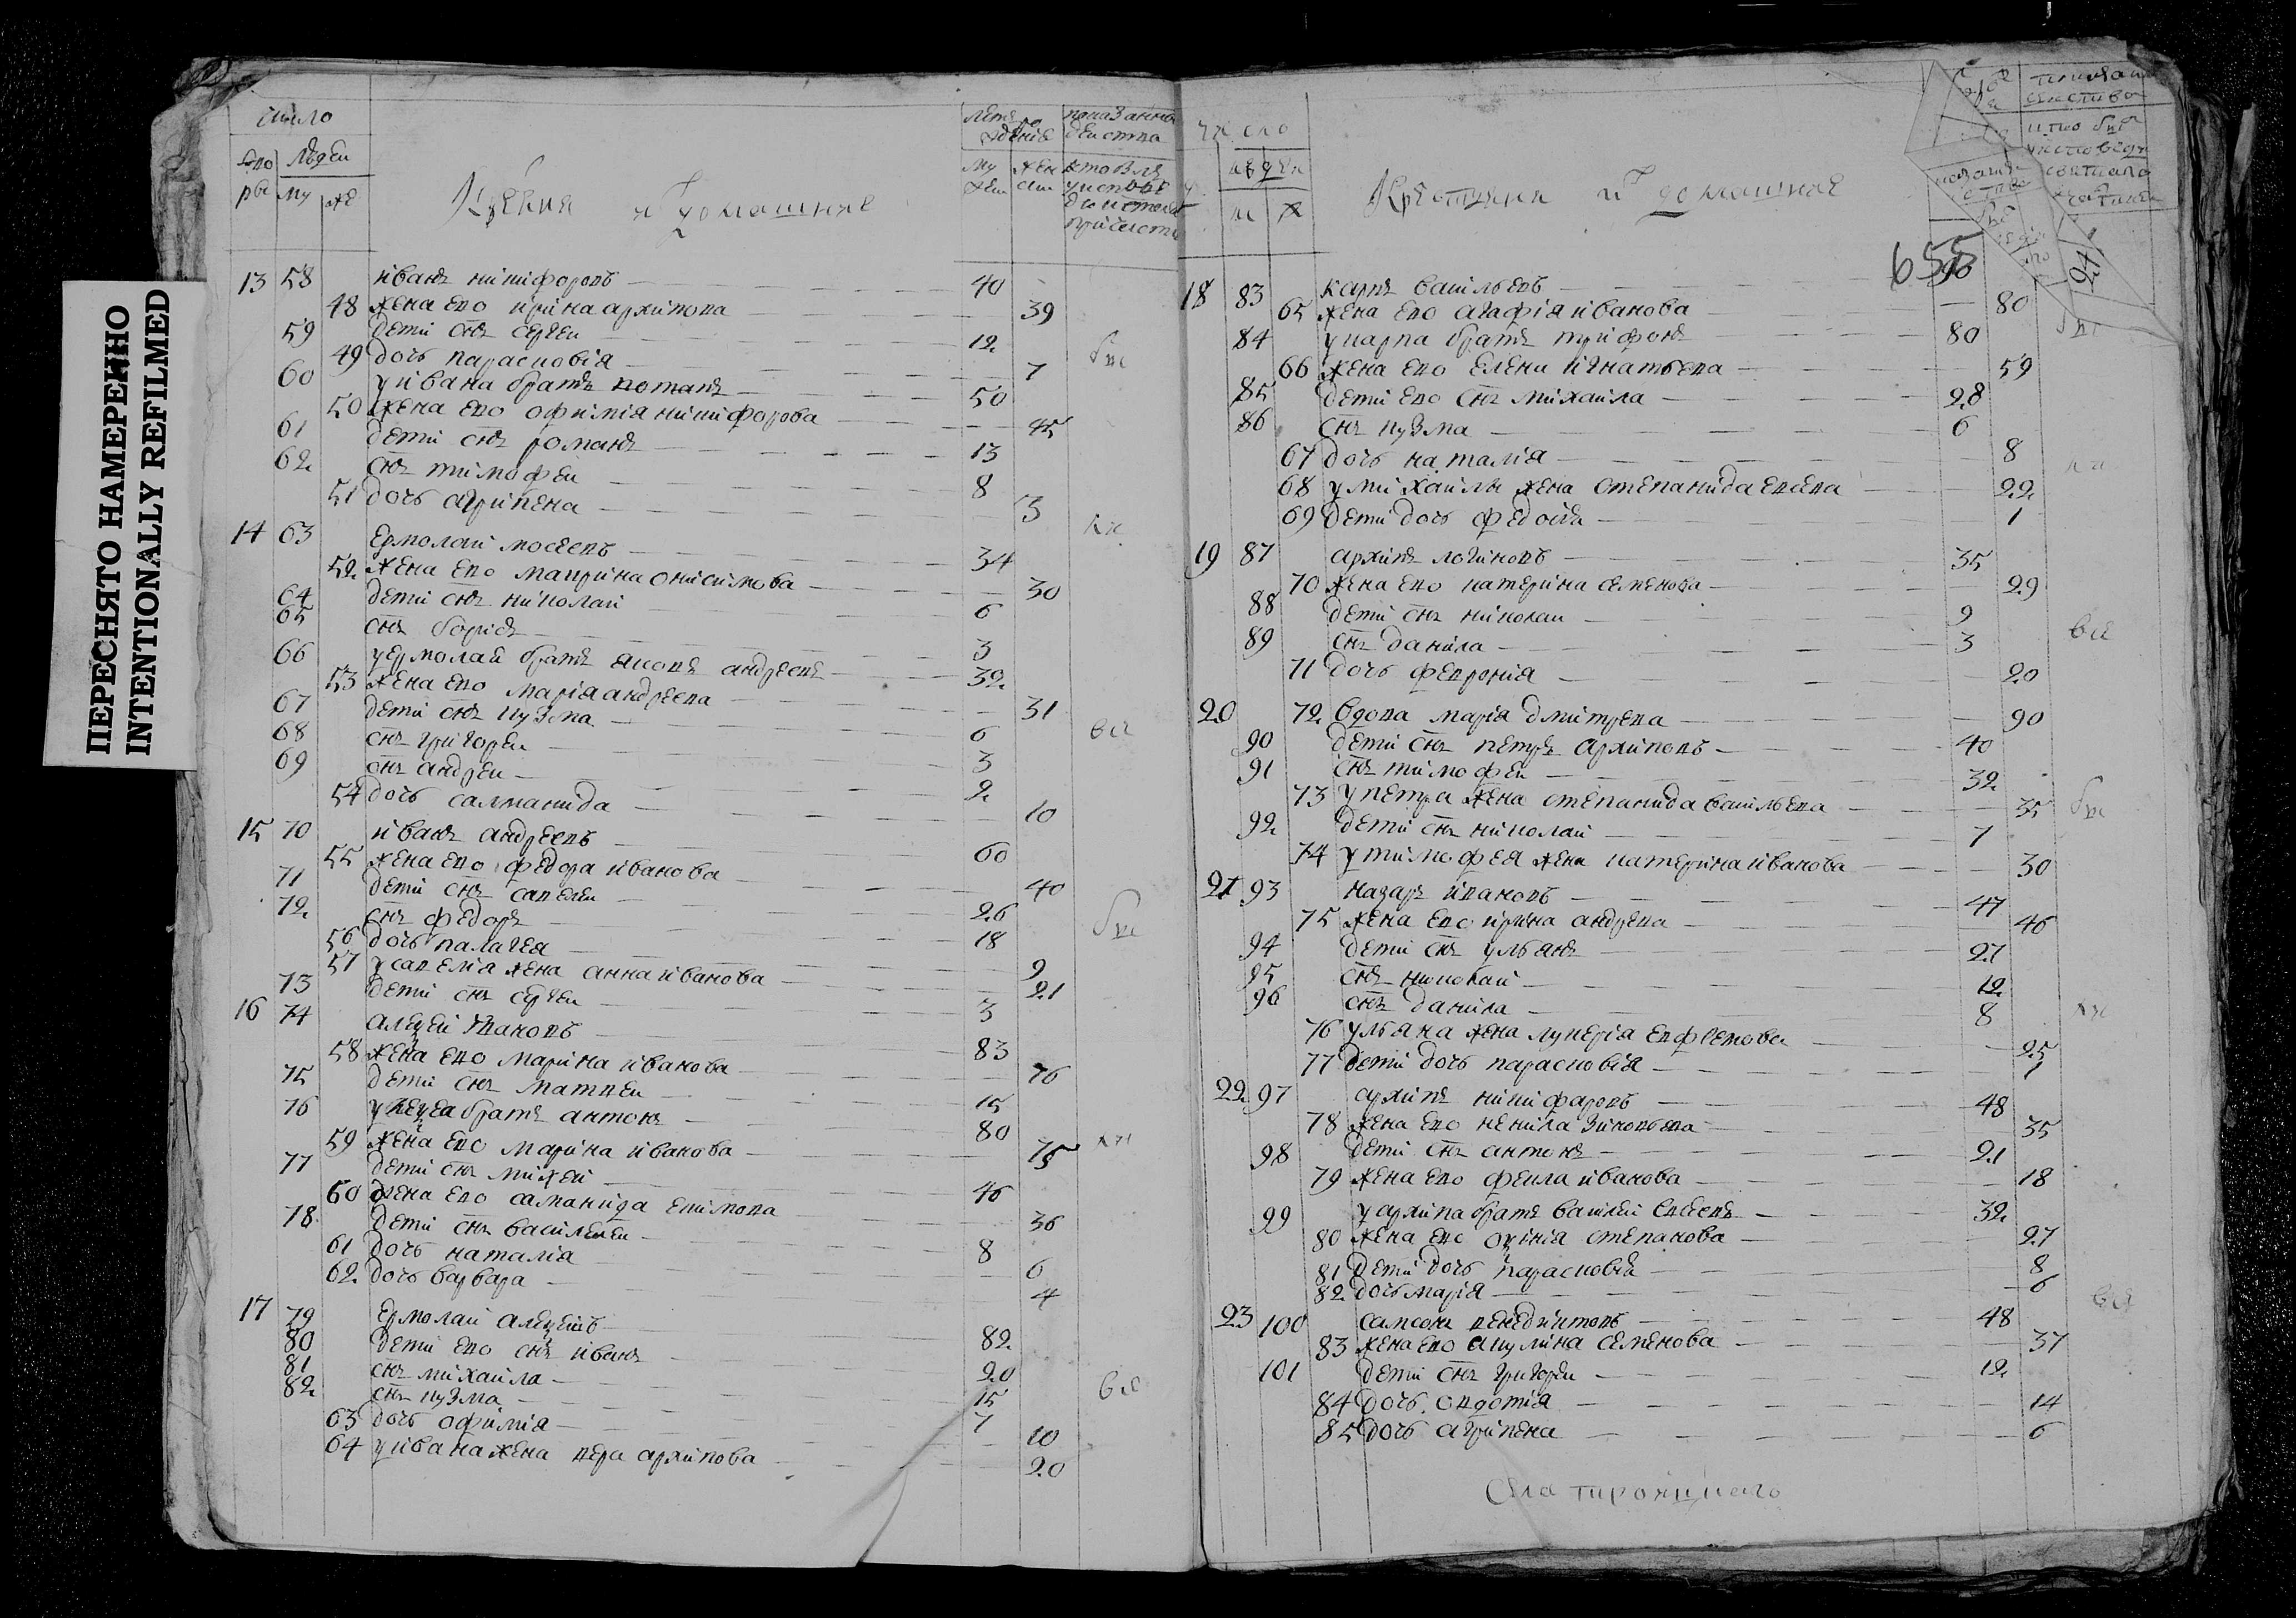 ПЕРЕСНЯТО НАМЕРЕННО
INTENTIONALLY REFILMED
число
дво ры
людеи
му же
и домашние
лета рождения
му жен
показание
13 58 иванъ никифоровъ 40
48 жена ево ирина архипова 39
59 дети снъ сергеи 12
49 дочь парасковія 7
60 у ивана братъ потапъ 50
50 жена ево офимія никифорова 45
61 дети снъ романъ 13
62 снъ тимофеи 8
51 дочь агрипена 3
14 63 Ермолаи мосеевъ 34
52 жена ево маврина онисимова 30
64 дети снъ николаи 6
65 снъ борисъ 3
66 у ермолаи братъ яковъ андреевъ 32
53 жена ево марія андреева 31
67 дети снъ кузма 6
68 снъ григореи 3
69 снъ андреи 2
54 дочь салманида 10
15 70 иванъ андреевъ 60
55 жена ево федора иванова 40
71 дети снъ савелеи 26
72 снъ федоръ 18
56 дочь палагея 9
57 у савелія жена анна иванова 21
73 дети снъ сергеи 3
16 74 алеѯеи ивановъ 83
58 жена ево марина иванова 76
75 дети снъ матвеи 15
76 братъ антонъ 80
59 жена ево марина иванова 75
77 дети снъ михеи 46
60 жена ево саманида екимова 36
78 дети снъ василеи 8
61 дочь наталія 6
62 дочь варвара 4
17 79 Ермолаи алеѯеевъ 82
80 дети ево снъ иванъ 20
81 снъ михаила 15
82 снъ кузма 7
63 дочь офимія 10
64 у ивана жена вера архипова 20
число
людеи
м ж
Крестьяня и домашние
655
18 83 карпъ василевъ 90
65 жена ево агафія иванова 80
84 у карпа братъ трифонъ 80
66 жена ево елена игнатьева 59
85 дети ево снъ михаила 28
86 снъ кузма 6
67 дочь наталія 8
68 у михаилы жена степанида евсева 22
69 дети дочь федосія 1
19 87 архипъ логиновъ 35
70 жена ево катерина семенова 29
88 дети снъ николаи 9
89 снъ данила 3
71 дочь февронія 20
20 72 вдова марія дмитрева 90
90 дети снъ петръ архиповъ 40
91 снъ тимофеи 32
73 у петра жена степанида васильева 35
92 дети снъ николаи 7
74 у тимофея жена катерина иванова 30
21 93 назаръ ивановъ 47
75 жена ево ирина андрева 46
94 дети снъ ульянъ 27
95 снъ николаи 12
96 снъ данила 8
76 ульяна жена лукерія 25
77 дети дочь парасковія 1
22 97 архипъ никифаровъ 48
78 жена ево ненила зиновьева 35
98 дети снъ антонъ 21
79 жена ево фекла иванова 18
99 у архипа братъ василеи евсеевъ 32
80 жена ево оѯинія степанова 27
81 дети дочь парасковія 8
82 дочь марія 6
23 100 самсонъ венедиктовъ 48
83 жена ево акулина семенова 37
101 дети снъ григореи 12
84 дочь овдотія 14
85 дочь агрипена 6
села троицкаго